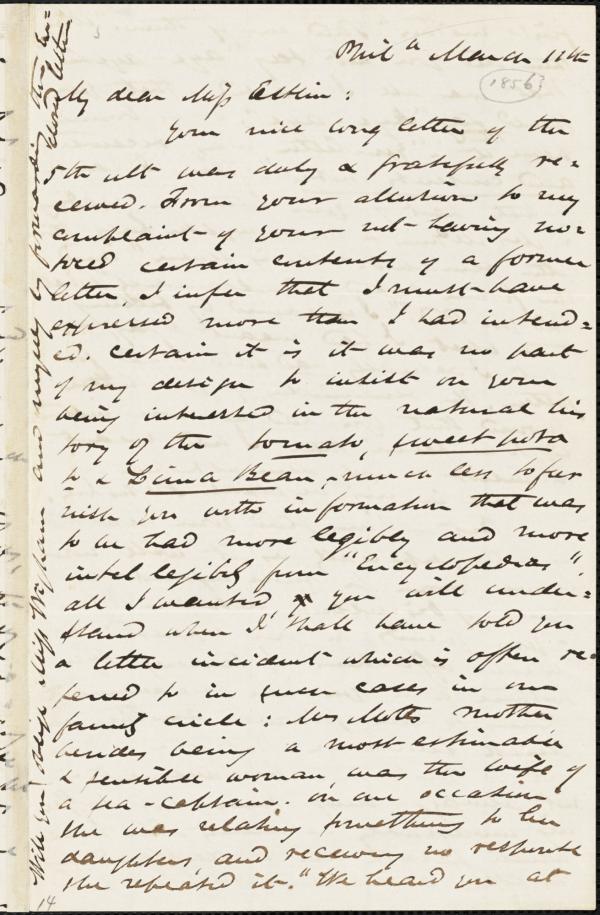 Phila March 11th
1856?
My dear Miss Estlin:
Your nice long letter of the
5th ult was duly & gratefully re=
ceived. From your allusion to my
complaint of your not having no=
ticed certain contents of a former
letter, I infer that I must have
expressed more than I had intend=
ed. Certain it is it was no part
of my design to insist on your
being interested in the natural his
tory of the tomato, sweet pota
to & Lima Bean, much less to fur
nish you with information that was
to be had more legibly and more
intellegibly from "Encyclopedias".
all I wanted, you will under=
stand when I shall have told you
a little incident which is often re=
ferred to in such cases in our
family circle: Mrs Motts mother
besides being a most estimable
& sensible woman, was the wife of
a sea-captain. On one occasion
she was relating something to her
daughters, and receiving no response
she repeated it. "We heard you at
Will you oblige Miss Wigham and myself by forwarding the en=
closed letter
14